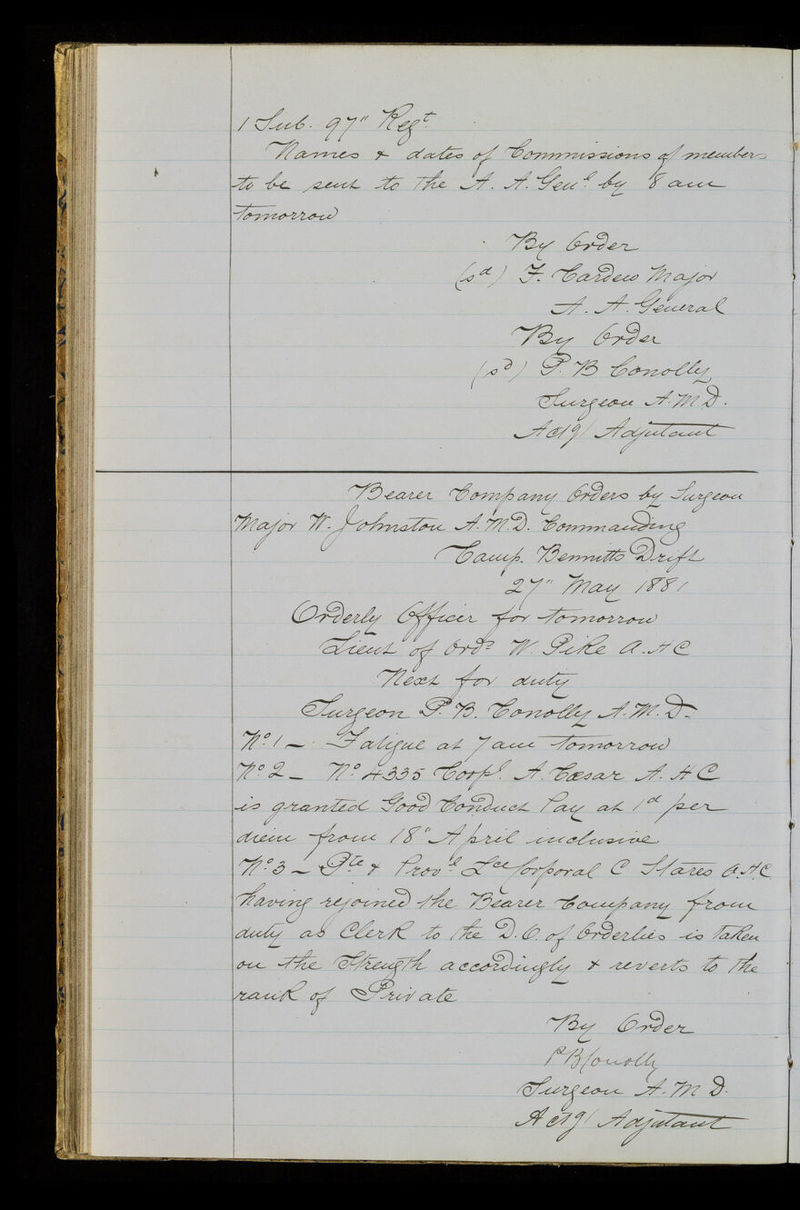 1 Sub. 97" Regt
Names & dates of Commissions of members
to be sent to the A. A. Genl by 8 am
tomorrow
By Order
(sd) F. Cardew Major
A. A. General
By Order
(sd) P. B Conolly
Surgeon A. M D.
Actg/ Adjutant
Bearer Company Orders by Surgeon
Major W. Johnston A. M. D. Commanding
Camp. Bennitts Drift
27" May 1881
Orderly Officer for tomorrow
Lieut of Ords W. Pike A. H C
Next for duty
Surgeon P. B. Conolly A. M. D-
No. 1 - Fatigue at 7 am tomorrow
No 2 - No 4335 Corpl. A. Cæsar A. H C
is granted Good Conduct Pay at 1d per
diem from 18" April inclusive
No 3 - Pte & Provl Lce Corporal C Stares A. H. C
having rejoined the Bearer Company from
duty as Clerk to the D. O. of Orderlies is taken
on the Strength accordingly & reverts to the
rank of Private
By Order
P B Conolly
Surgeon A. M D.
Actg/ Adjutant